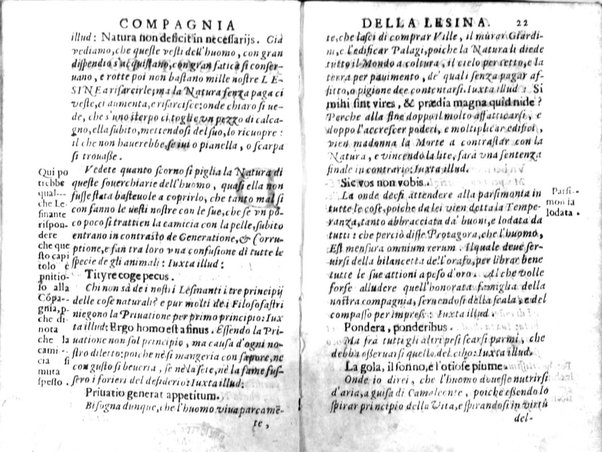 COMPAGNIA
illud: Natura non deficit in necessarijs. Già
vediamo, che queste vesti dell'huomo, con gran
dispendio s'acquistano, con gran fatica si conser-
uano, e rotte poi non bastano mille nostre LE-
SINE a risarcirle; ma la Natura senza paga ci
veste, ci aumenta, e risarcisce: onde chiaro si ue-
de, che s'uno sterpo ci toglie un pezzo di calca-
gno, ella subito, mettendosi del suo, lo ricuopre:
il che non hauerebbe se iui o pianella, o scarpa
si trouasse.
Vedete quanto scorno si piglia la Natura di
queste souerchiarie dell'huomo, quasi ella non
fusse stata basteuole a coprirlo, che tanto mal si
confanno le uesti nostre con le sue, che se vn po-
co poco si trattien la camicia con la pelle, subito
entrano in contrasto de Generatione, & Corru-
ptione, e fan tra loro vna confusione di tutte le
specie de gli animali: Iuxta illud:
Tityre coge pecus.
Chi non sà de i nostri Lesinanti i tre principij
delle cose naturali? e pur molti dei Filosofastri
niegono la Priuatione per primo principio: Iux
ta illud: Ergo homo est asinus. Essendo la Pri-
uatione non sol principio, ma causa d'ogni no-
stro diletto; poiche nè si mangeria con sapore, ne
con gusto si beueria, se nè la sete, nè la fame fus-
sero i forieri del desiderio: Iuxta illud:
Priuatio generat appetitum.
Bisogna dunque, che l'huomo viua parcamē-
te,
Qui po
trebbe
qual-
che Le-
sinante
rispon
dere
che que
sto capi
tolo è
pnitio-
so alla
Cōpa-
gnia, p-
che di-
nota
che la
cami-
cia si
muta
spesso.
DELLA LESINA. 22
te, che lasci di comprar Ville, il murar Giardi-
ni, e l'edificar Palagi, poiche la Natura li diede
tutto il Mondo a coltura, il cielo per tetto, e la
terra per pauimento, de' quali senza pagar af-
fitto, o pigione dee contentarsi: Iuxta illud: Si
mihi sint vires, & prædia magna quid inde?
Perche alla fine doppo il molto affatticarsi, e
doppo l'accrescer poderi, e moltiplicar edificij,
vien madonna la Morte a contrastar con la
Natura, e vincendo la lite, farà vna sentenza
finale in contrario: Iuxta illud.
Sic vos non vobis.
La onde deesi attendere alla parsimonia in
tutte le cose, poiche da lei vien detta la Tempe-
ranza, tanto abbracciata da' buoni, e lodata da
tutti: che perciò disse Protagora, che l'huomo,
Est mensura omnium rerum. Al quale deue ser-
uirsi della bilancetta de l'orafo, per librar bene
tutte le sue attioni a peso d'oro. Al che volle
forse alludere quell'honorata famiglia della
nostra compagnia, seruendosi della scala, e del
compasso per impresa: Iuxta illud.
Pondera, ponderibus.
Ma frà tutti gli altri pesi scarsi parmi, che
debba esseruarsi quello del cibo: Iuxta illud.
La gola, il sonno, e l'otiose piume.
Onde io direi, che l'huomo douesse nutrirsi
d'aria, a guisa di Cameleonte, poiche essendo lo
spirar principio della Vita, e spirandosi in virtù
del-
Parsi-
monia
lodata.